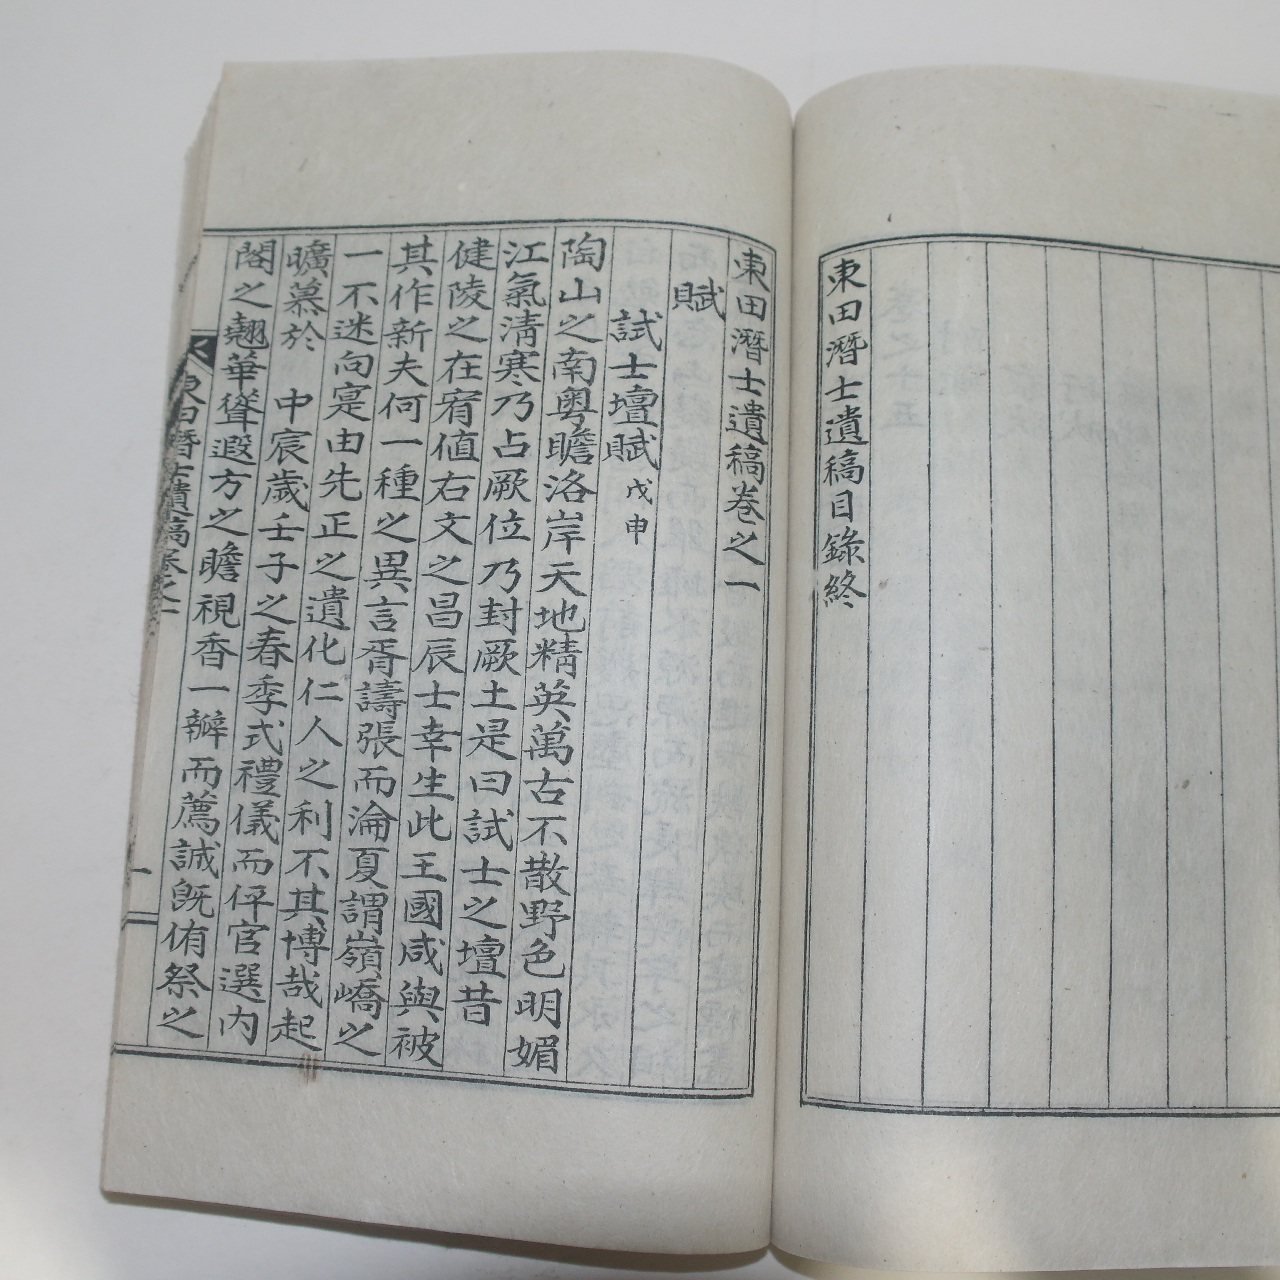 東田潛士遺稿目錄終
東田潛士遺稿卷之一
賦
試士壇賦 戊申
陶山之南粤瞻洛岸天地精英萬古不散野色明媚
江氣淸寒乃占厥位乃封厥土是曰試士之壇昔
健陵之在宥値右文之昌辰士幸生此王國咸與被
其作新夫何一種之異言胥譸張而淪夏謂嶺嶠之
一不迷向寔由先正之遺化仁人之利不其博哉起
曠慕於 中宸歲壬子之春季式禮儀而伻官選內
閣之翹華聳遐方之瞻視香一瓣而薦誠旣侑祭之
東田潛士遺稿卷之一
一